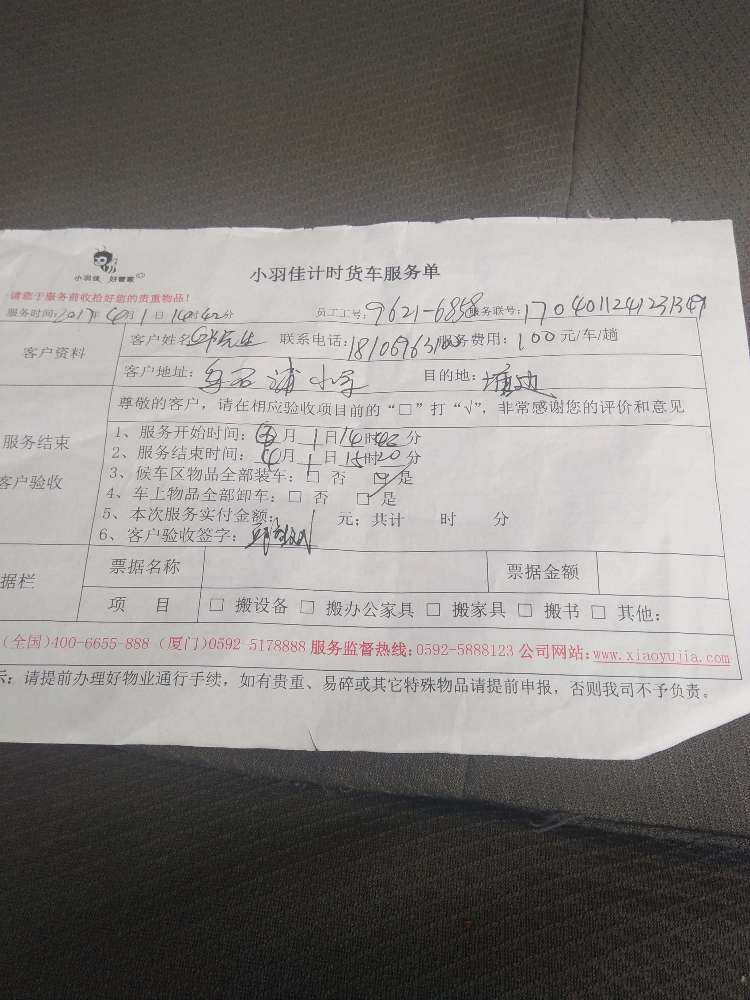 小羽佳 好管家
小羽佳计时货车服务单
请您于服务前收拾好您的贵重物品！
服务时间:2017年4月1日14时42分 员工工号:9621-6858 服务联号:
客户资料
客户姓名: 先生 联系电话: 服务费用:100元/车/趟
客户地址: 石浦小学 目的地:塘边
尊敬的客户，请在相应验收项目前的“□”打“√”，非常感谢您的评价和意见
服务结束
客户验收
1、服务开始时间: 月1日14时 分
2、服务结束时间:4月1日15时20分
3、候车区物品全部装车:□ 否 □ 是
4、车上物品全部卸车:□ 否 □ 是
5、本次服务实付金额: 元；共计 时 分
6、客户验收签字:
据栏
票据名称 票据金额
项 目 □ 搬设备 □ 搬办公家具 □ 搬家具 □ 搬书 □ 其他:
(全国)400-6655-888 (厦门)0592-5178888 服务监督热线:0592-5888123 公司网站:www.xiaoyujia.com
示:请提前办理好物业通行手续，如有贵重、易碎或其它特殊物品请提前申报，否则我司不予负责。